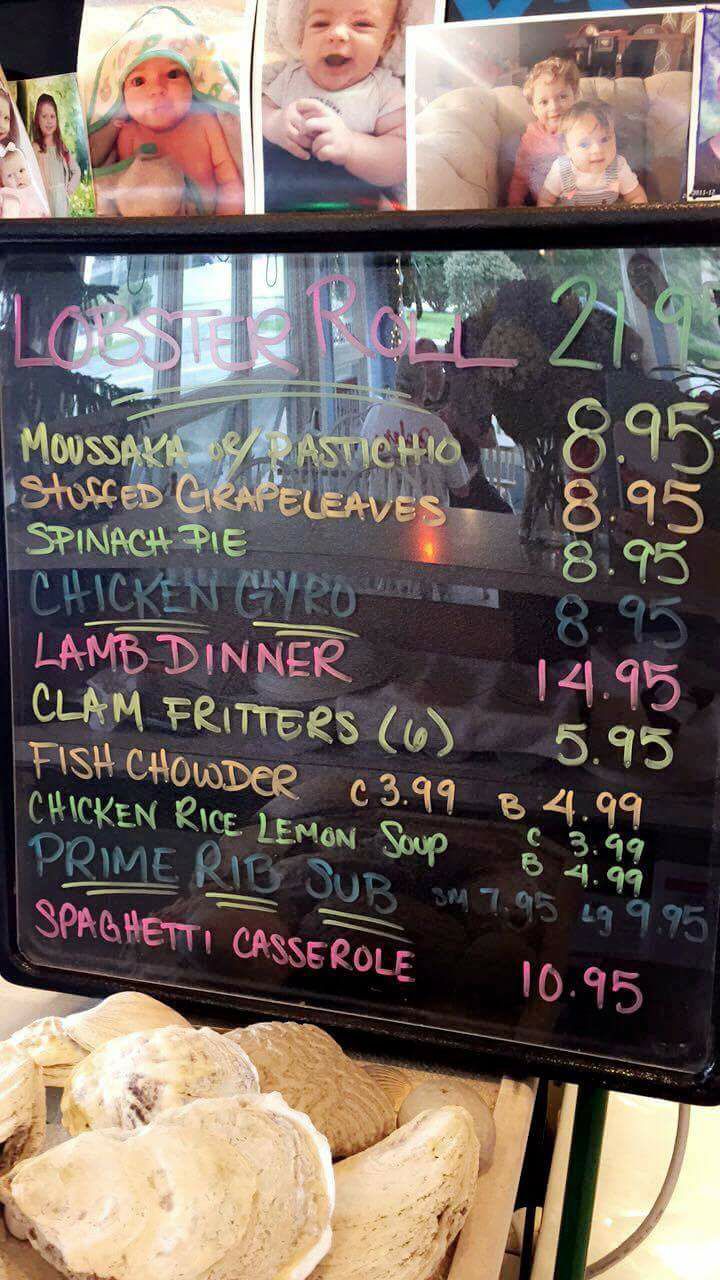 LOBSTER ROLL 21.9
MOUSSAKA or PASTICHIO 8.95
STUFFED GRAPELEAVES 8.95
SPINACH PIE 8.95
CHICKEN GYRO 8.95
LAMB DINNER 14.95
CLAM FRITTERS (6) 5.95
FISH CHOWDER C 3.99 B 4.99
CHICKEN RICE LEMON SOUP C 3.99
B 4.99
PRIME RIB SUB SM 7.95 Lg 9.95
SPAGHETTI CASSEROLE 10.95